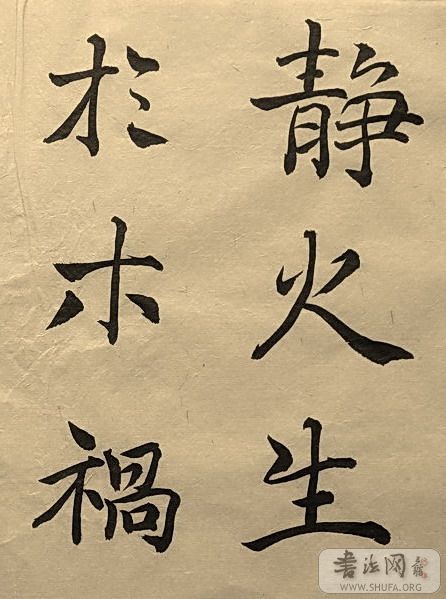 静火生
於木禍
書法网
WWW.SHUFA.ORG